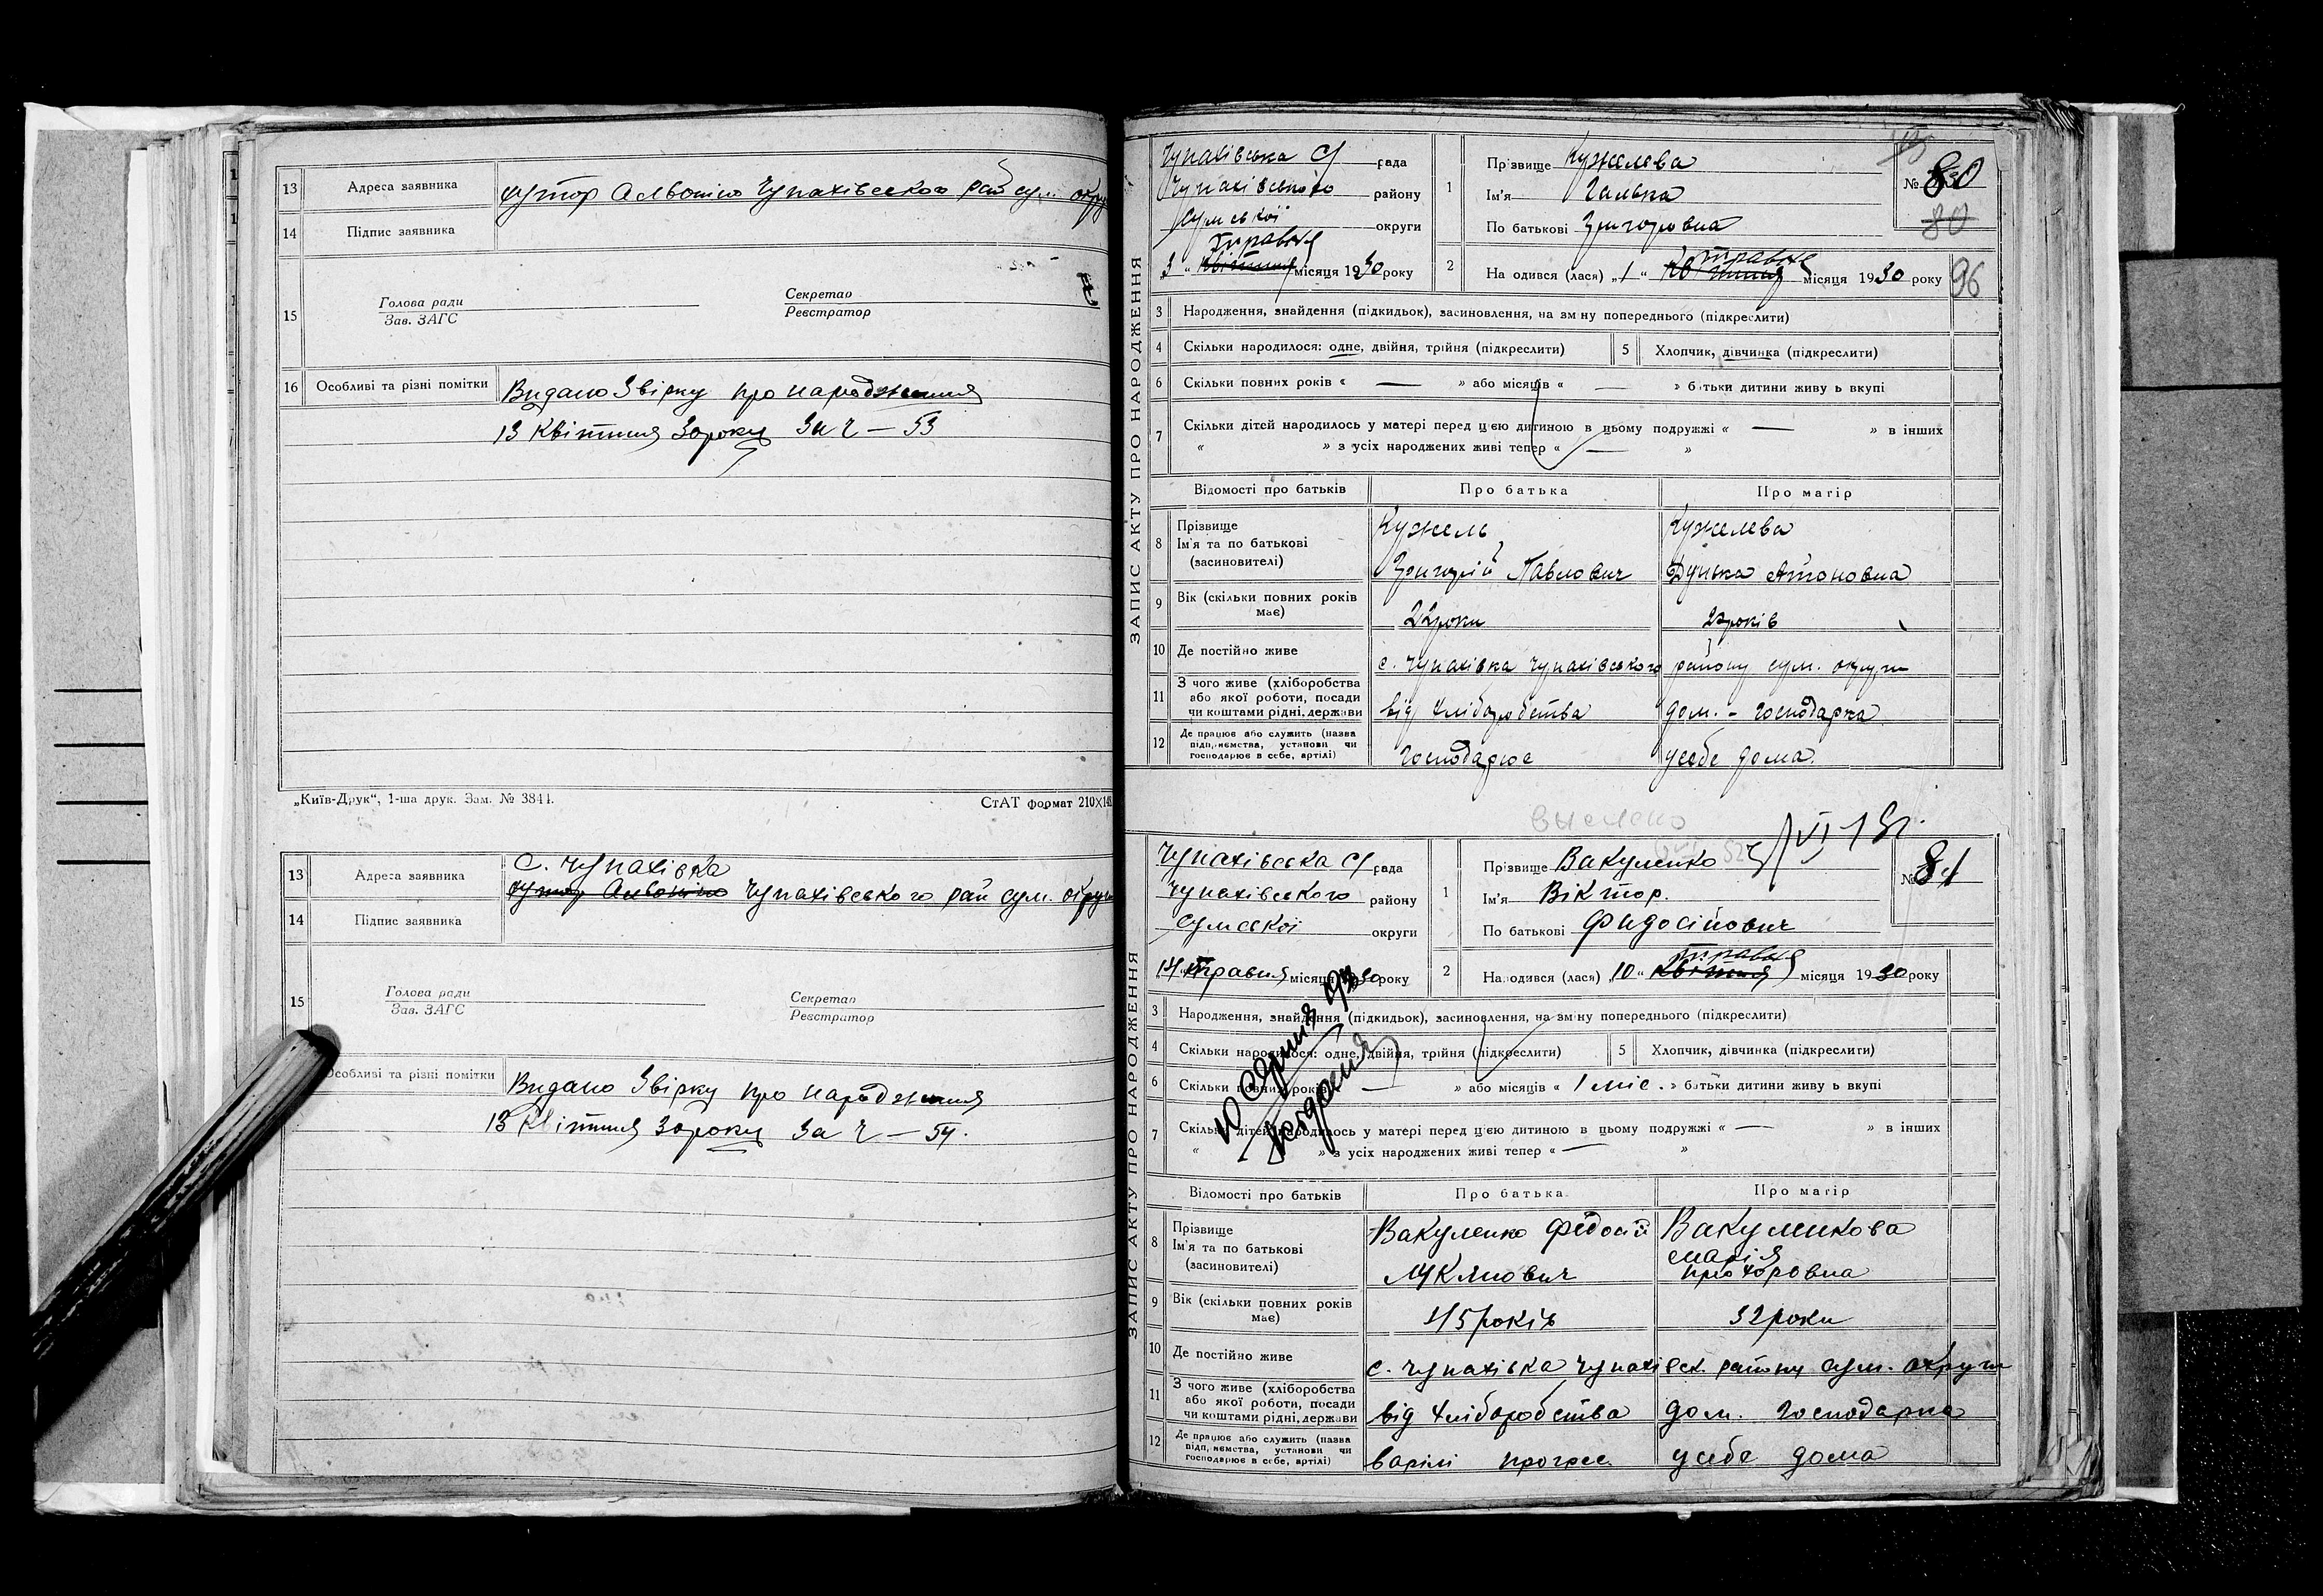 13 Адреса заявника хутор Альвоніно Чупахівського рай сум. округ
14 Підпис заявника
15 Голова ради
Зав. ЗАГС
Секретар
Реєстратор
16 Особливі та різні помітки Видано Звірку про народження
13 Квітня 30 року За Ч – 53
„Київ-Друк“, 1-ша друк. Зам. № 3844.
СтАТ формат 210×148
13 Адреса заявника с. Чупахівка
Чупахівського рай сум. округ
14 Підпис заявника
15 Голова ради
Зав. ЗАГС
Секретар
Реєстратор
Особливі та різні помітки Видано Звірку про народження
13 Квітня 30 року За Ч – 54.
ЗАПИС АКТУ ПРО НАРОДЖЕННЯ
Чупахівська с/ рада
Чупахівського району
Сумської округи
3 „ травня місяця 1930 року
1 Прізвище Кужелева
Ім'я Галька
По батькові Григоровна
№ 80
80
2 Народився (лася) „1“ травня місяця 1930 року
96
3 Народження, знайдення (підкидьок), засиновлення, на зміну попереднього (підкреслити)
4 Скільки народилося: одне, двійня, трійня (підкреслити) 5 Хлопчик, дівчинка (підкреслити)
6 Скільки повних років « — » або місяців « — » батьки дитини живуть вкупі
7 Скільки дітей народилось у матері перед цією дитиною в цьому подружжі « — » в інших
« » з усіх народжених живі тепер « — »
Відомості про батьків Про батька Про матір
8 Прізвище Кужель Кужелева
Ім'я та по батькові
(засиновителі) Григорій Павлович Дунька Атоновна
9 Вік (скільки повних років має) 22 роки років
10 Де постійно живе с. Чупахівка Чупахівського району сум. округи
11 З чого живе (хліборобства
або якої роботи, посади
чи коштами рідні, держави від хліборобства дом. - господарка
12 Де працює або служить (назва
підприємства, установи чи
господарює в себе, артілі) господарює у себе дома.
ЗАПИС АКТУ ПРО НАРОДЖЕННЯ
Чупахівська с/ рада
Чупахівського району
Сумської округи
14 травня місяця 1930 року
1 Прізвище Вакуленко
Ім'я Віктор.
По батькові Фидосійович
№ 81
2 Народився (лася) „10“ травня місяця 1930 року
3 Народження, знайдення (підкидьок), засиновлення, на зміну попереднього (підкреслити)
4 Скільки народилося: одне, двійня, трійня (підкреслити) 5 Хлопчик, дівчинка (підкреслити)
6 Скільки повних років — » або місяців « 1 міс. » батьки дитини живуть вкупі
7 Скільки дітей народилось у матері перед цією дитиною в цьому подружжі « — » в інших
« » з усіх народжених живі тепер « — »
Відомості про батьків Про батька Про матір
8 Прізвище Вакуленко Федосій Вакуленкова
Ім'я та по батькові Марія
(засиновителі) Прохоровна
9 Вік (скільки повних років має) 45 років 32 роки
10 Де постійно живе с. Чупахівка Чупахівск. району сум. округи
11 З чого живе (хліборобства
або якої роботи, посади
чи коштами рідні, держави від хліборобства дом. господарка
12 Де працює або служить (назва
підприємства, установи чи
господарює в себе, артілі) в арілі прогрес у себе дома